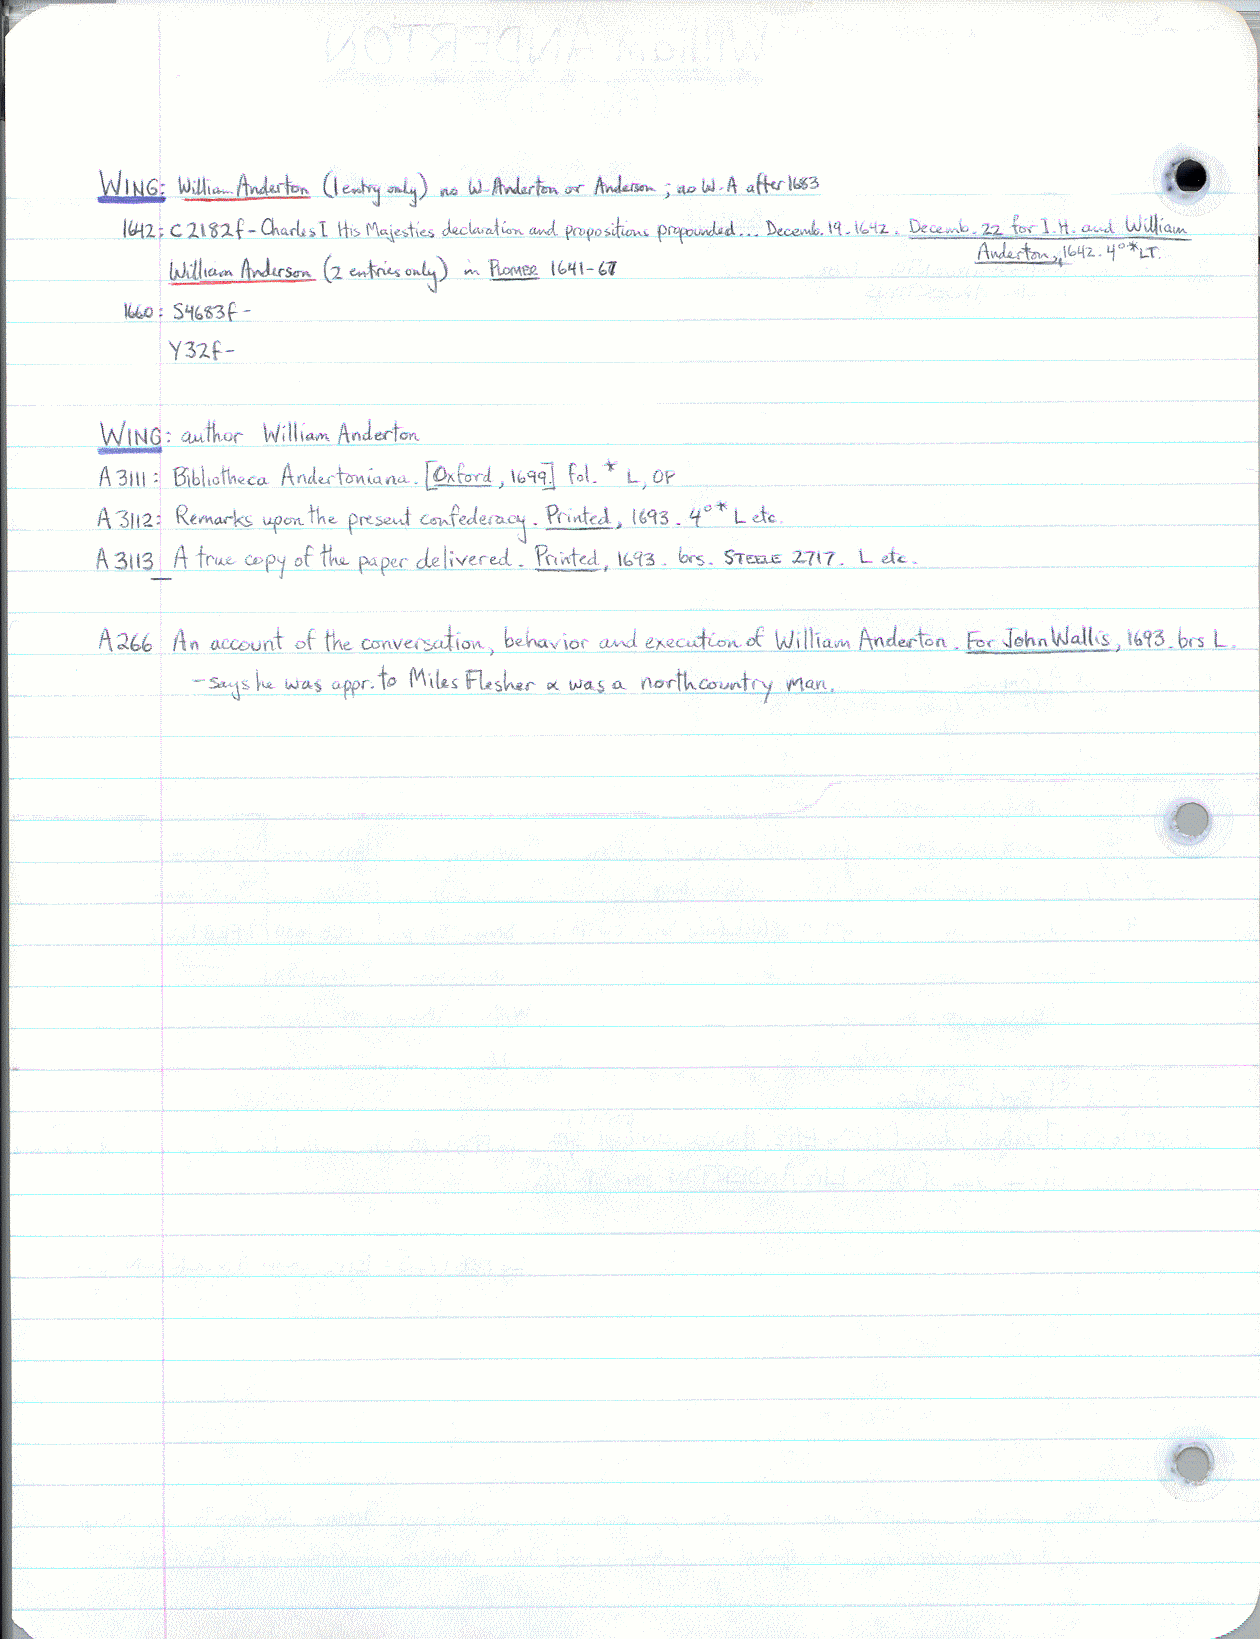 WING: William Anderton (1 entry only) no W. Anderton or Anderson; no W. A after 1683
1642: C2182f - Charles I His Majesties declaration and propositions propounded... Decemb. 19. 1642. Decemb. 22 for I. H. and William
Anderton, 1642. 4°* LT.
William Anderson (2 entries only) in PLOMER 1641-67
1660: S4683f -
Y32f -
WING: author William Anderton
A3111: Bibliotheca Andertoniana. [Oxford, 1699] fol.* L, OP
A3112: Remarks upon the present confederacy. Printed, 1693. 4°* L etc.
A3113 A true copy of the paper delivered. Printed, 1693. brs. STEELE 2717. L etc.
A266 An account of the conversation, behavior and execution of William Anderton. For John Wallis, 1693. brs L.
- says he was appr. to Miles Flesher & was a northcountry man.